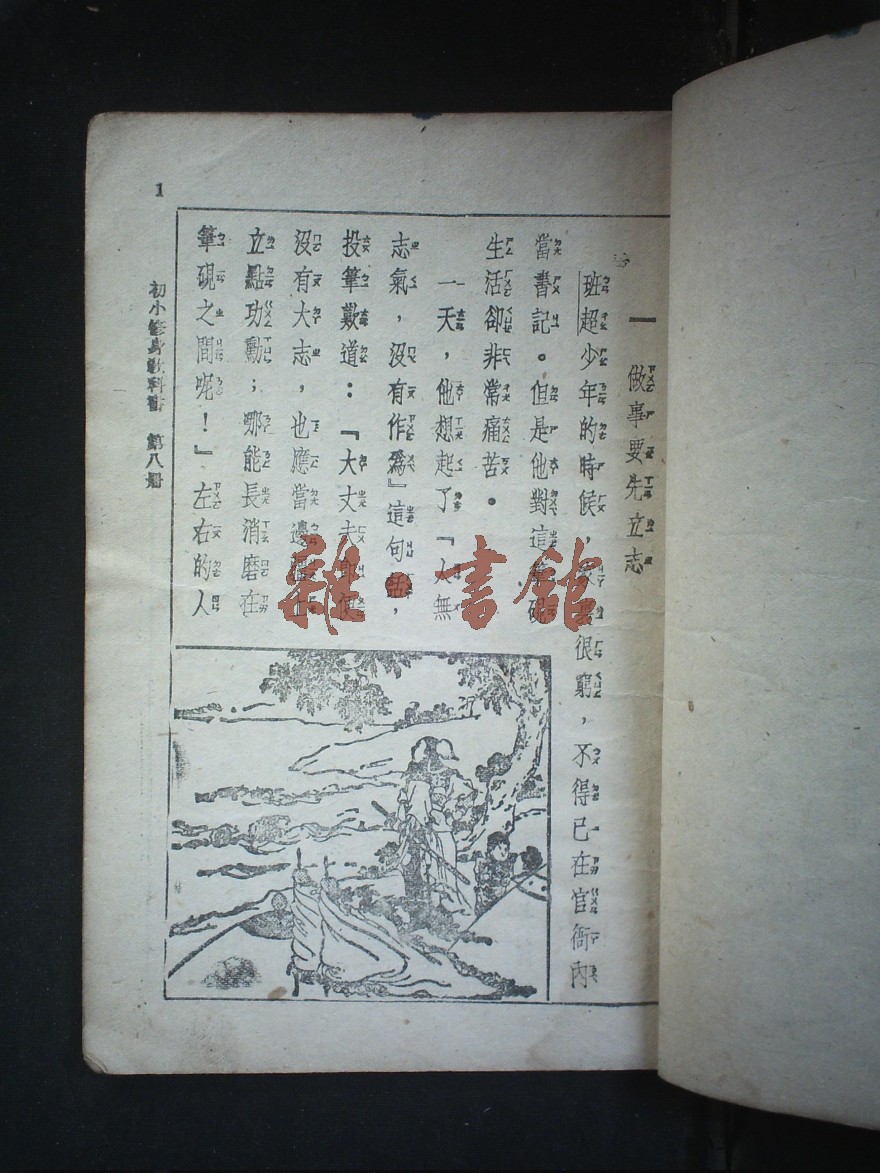 一 做事要先立志
班超少年的時候，家裏很窮，不得已在官衙內
當書記。但是他對這筆硯
生活卻非常痛苦。
一天，他想起了『人無
志氣，沒有作為』這句話，
投筆歎道：『大丈夫即使
沒有大志，也應當邊疆上
立點功勳；哪能長消磨在
筆硯之間呢！』左右的人
初小修身教科書 第八册
1
雜·書館